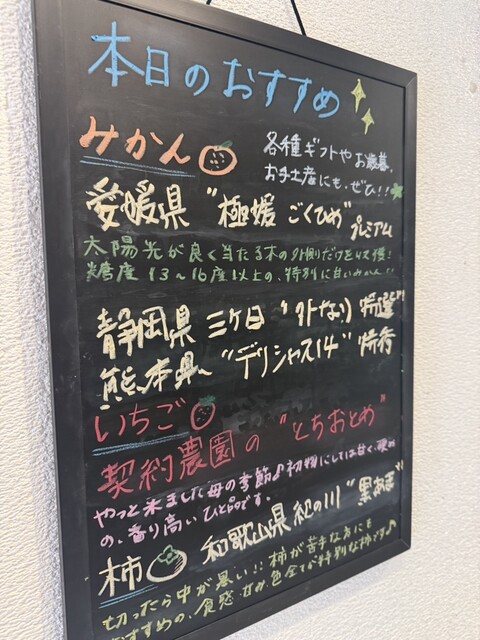 本日のおすすめ
みかん
各種ギフトやお歳暮、
お手土産にも、ぜひ!!
愛媛県 "極媛 ごくひめ" プレミアム
太陽光が良く当たる木の外側だけを収穫!
糖度13〜16度以上の、特別に甘いみかん!!
静岡県 三ケ日 "外なり 特選"
熊本県 "デリシャス14" 特秀
いちご
契約農園の "とちおとめ"
やっと来ました苺の季節♪初物にしては甘く、
の、香り高いひと品です。
柿 和歌山県 紀の川 "黒あま"
切ったら中が黒い!!柿が苦手な方にも
おすすめの、食感 甘み 色全てが特別な柿です♪